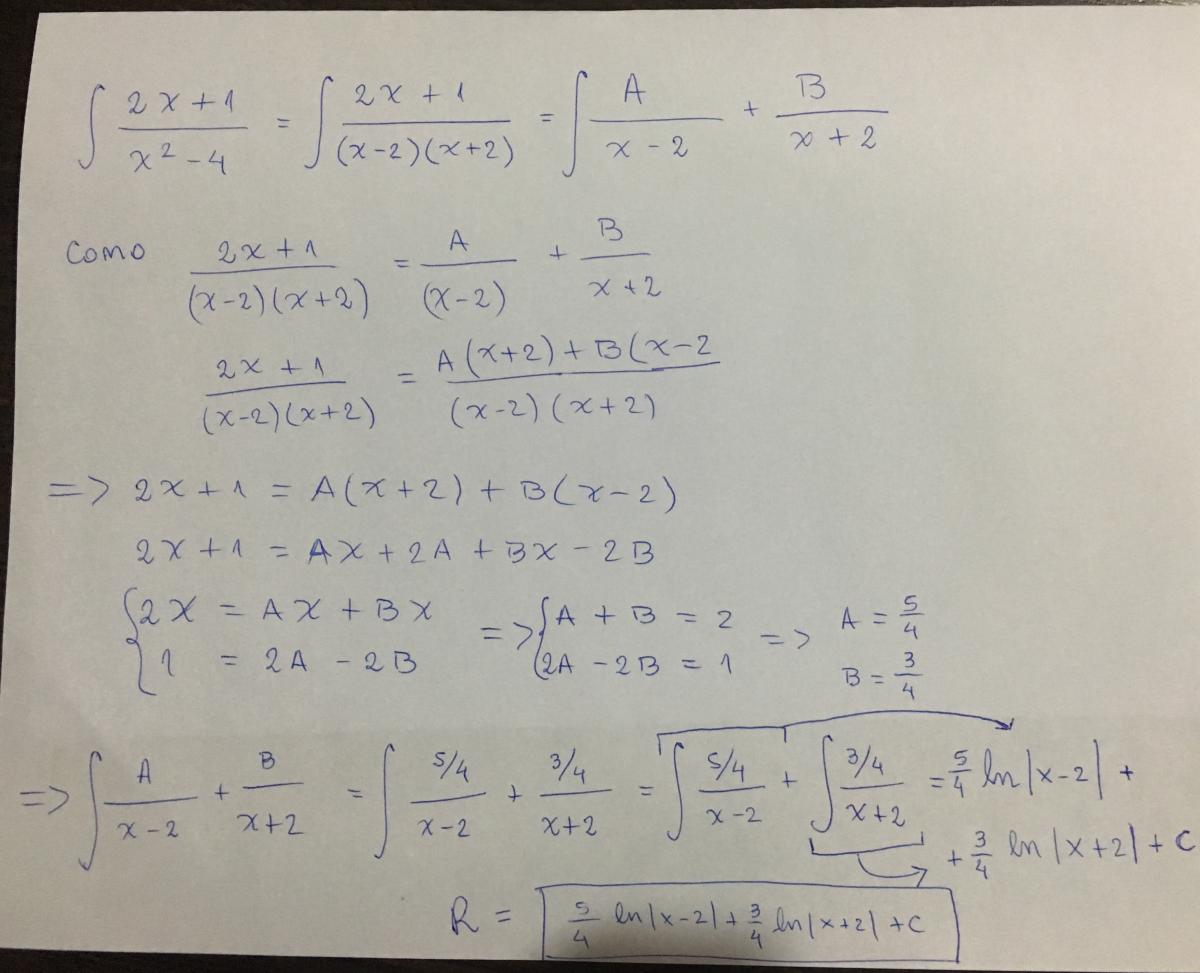 ∫ (2x+1)/(x²-4) = ∫ (2x+1)/((x-2)(x+2)) = ∫ A/(x-2) + B/(x+2)
Como (2x+1)/((x-2)(x+2)) = A/(x-2) + B/(x+2)
(2x+1)/((x-2)(x+2)) = (A(x+2)+B(x-2)/((x-2)(x+2))
=> 2x+1 = A(x+2) + B(x-2)
2x+1 = Ax+2A+Bx-2B
{2x = Ax+Bx => {A+B = 2 => A = 5/4
1 = 2A-2B 2A-2B = 1 B = 3/4
=> ∫ A/(x-2) + B/(x+2) = ∫ (5/4)/(x-2) + (3/4)/(x+2) = ∫ (5/4)/(x-2) + ∫ (3/4)/(x+2) = 5/4 ln|x-2| +
+ 3/4 ln|x+2| + C
R = 5/4 ln|x-2| + 3/4 ln|x+2| + C